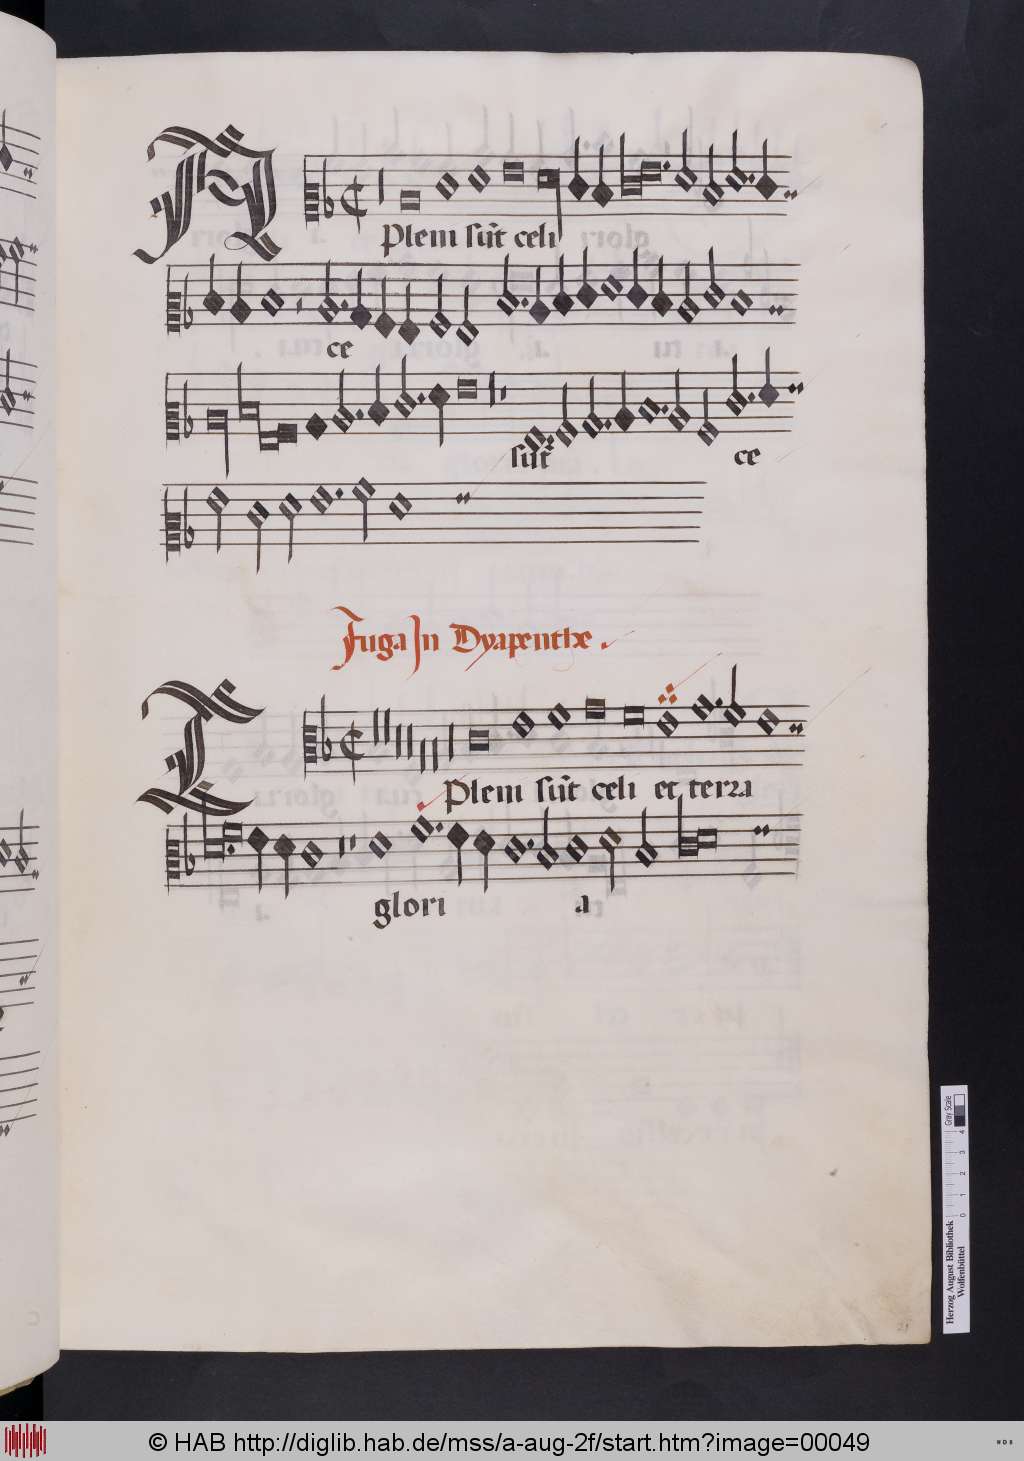 Pleni sūt celi
ce
sūt ce
Fuga In Dyapenthe.
T
Pleni sūt celi et terra
glori a
Gray Scale
0 1 2 3 4
Herzog August Bibliothek
Wolfenbüttel
© HAB http://diglib.hab.de/mss/a-aug-2f/start.htm?image=00049